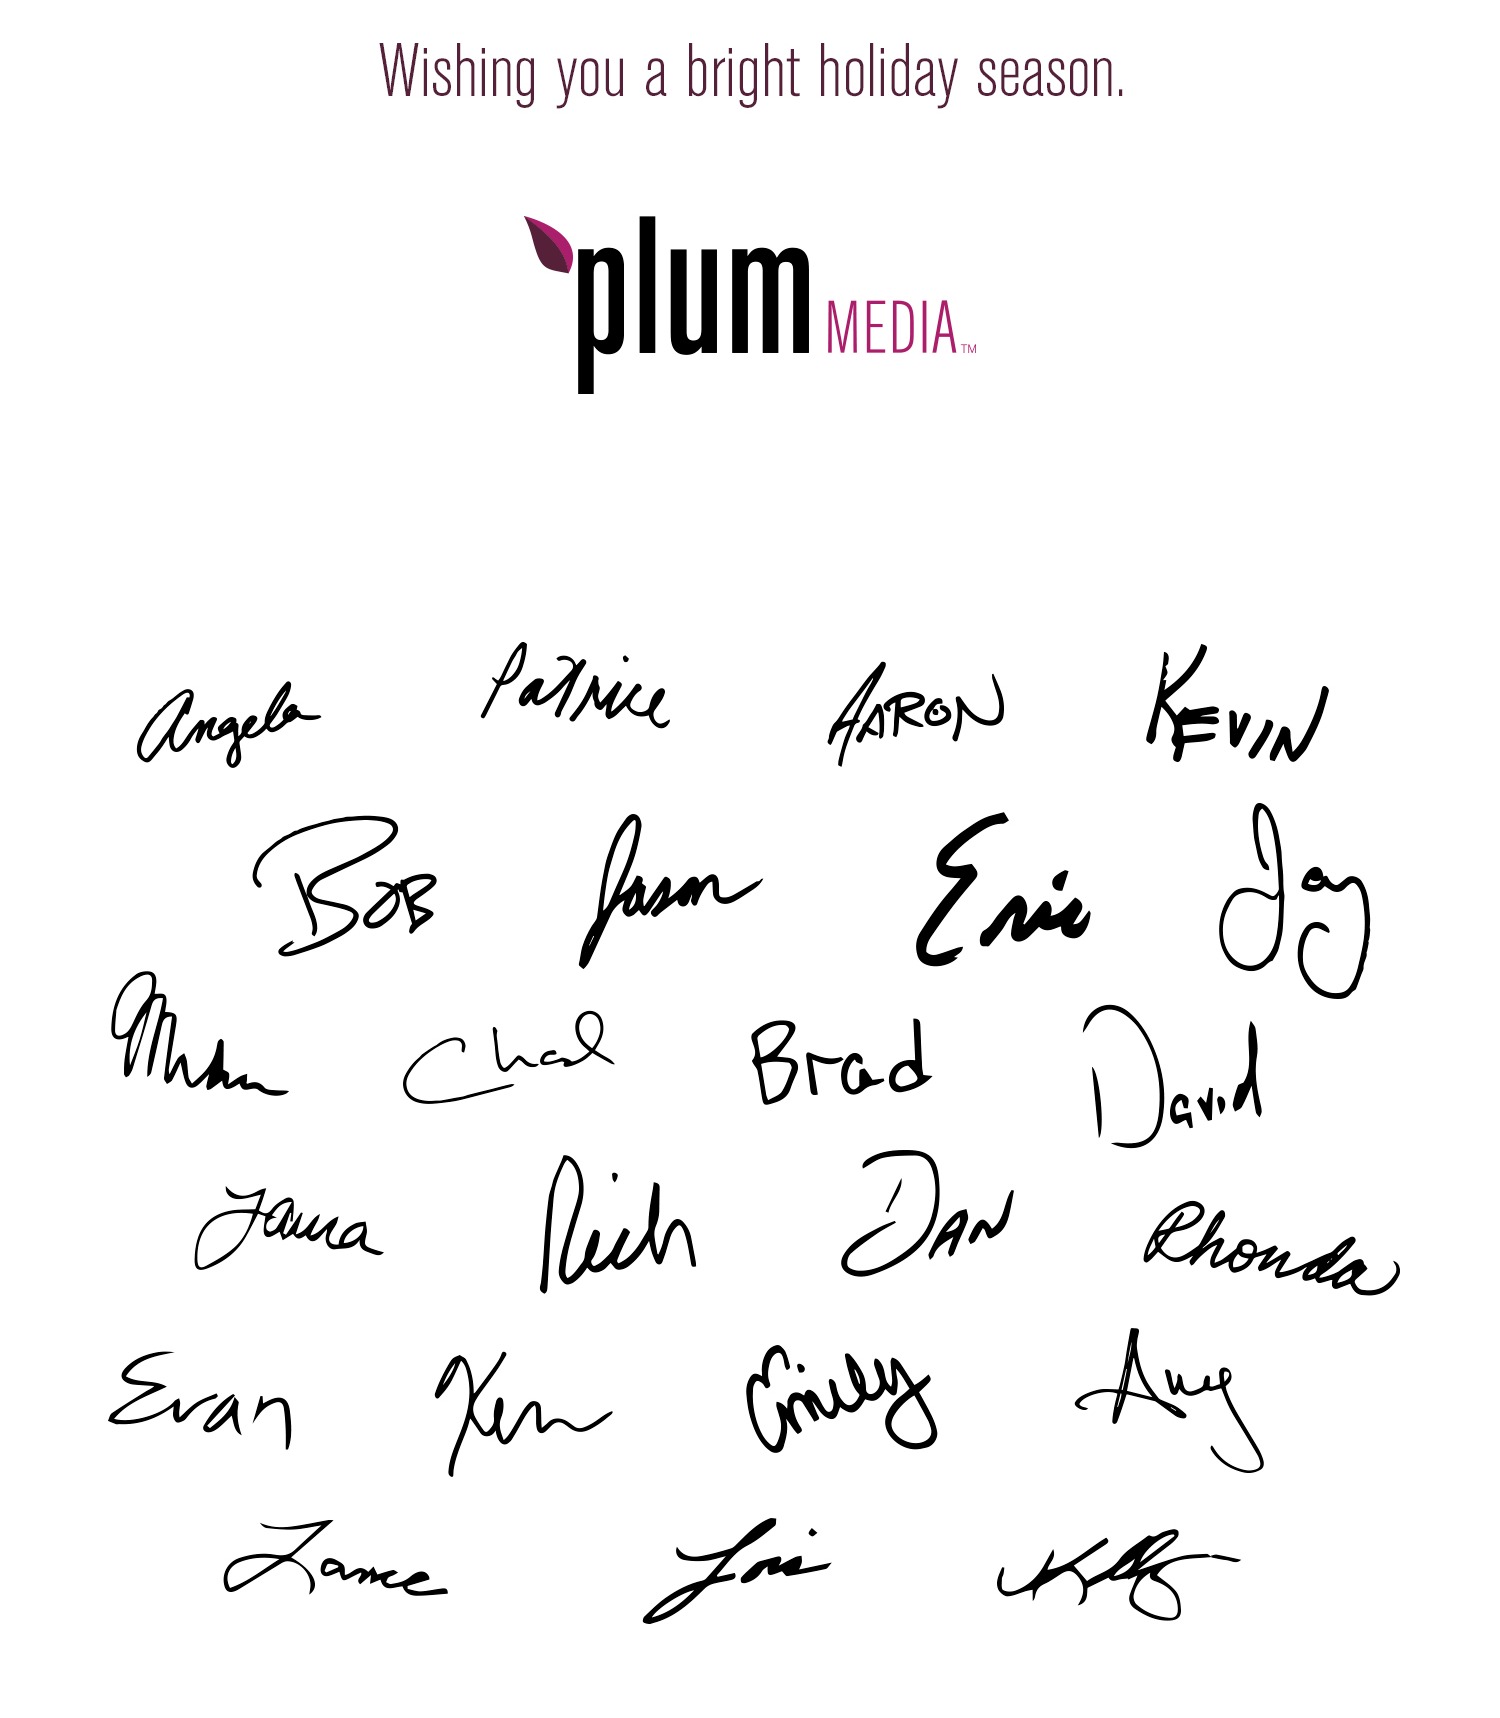 Wishing you a bright holiday season.
plum MEDIA™
Angela Patrice AARON KEVIN
BOB Jason Eric Jay
Chad Brad David
Laura Rich DAN Rhonda
Evan Ken Emily Amy
Lance Lois Kelly